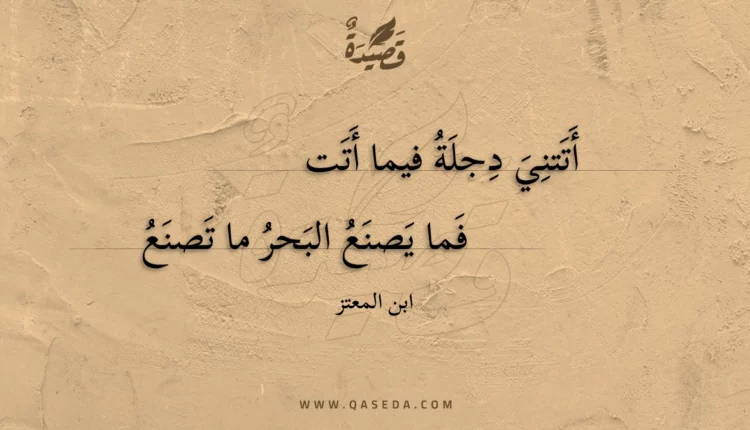 قَصِيْدَةٌ
أَتَتنِيَ دِجلَةُ فيما أَتَت
فَما يَصنَعُ البَحرُ ما تَصنَعُ
ابن المعتز
WWW.QASEDA.COM